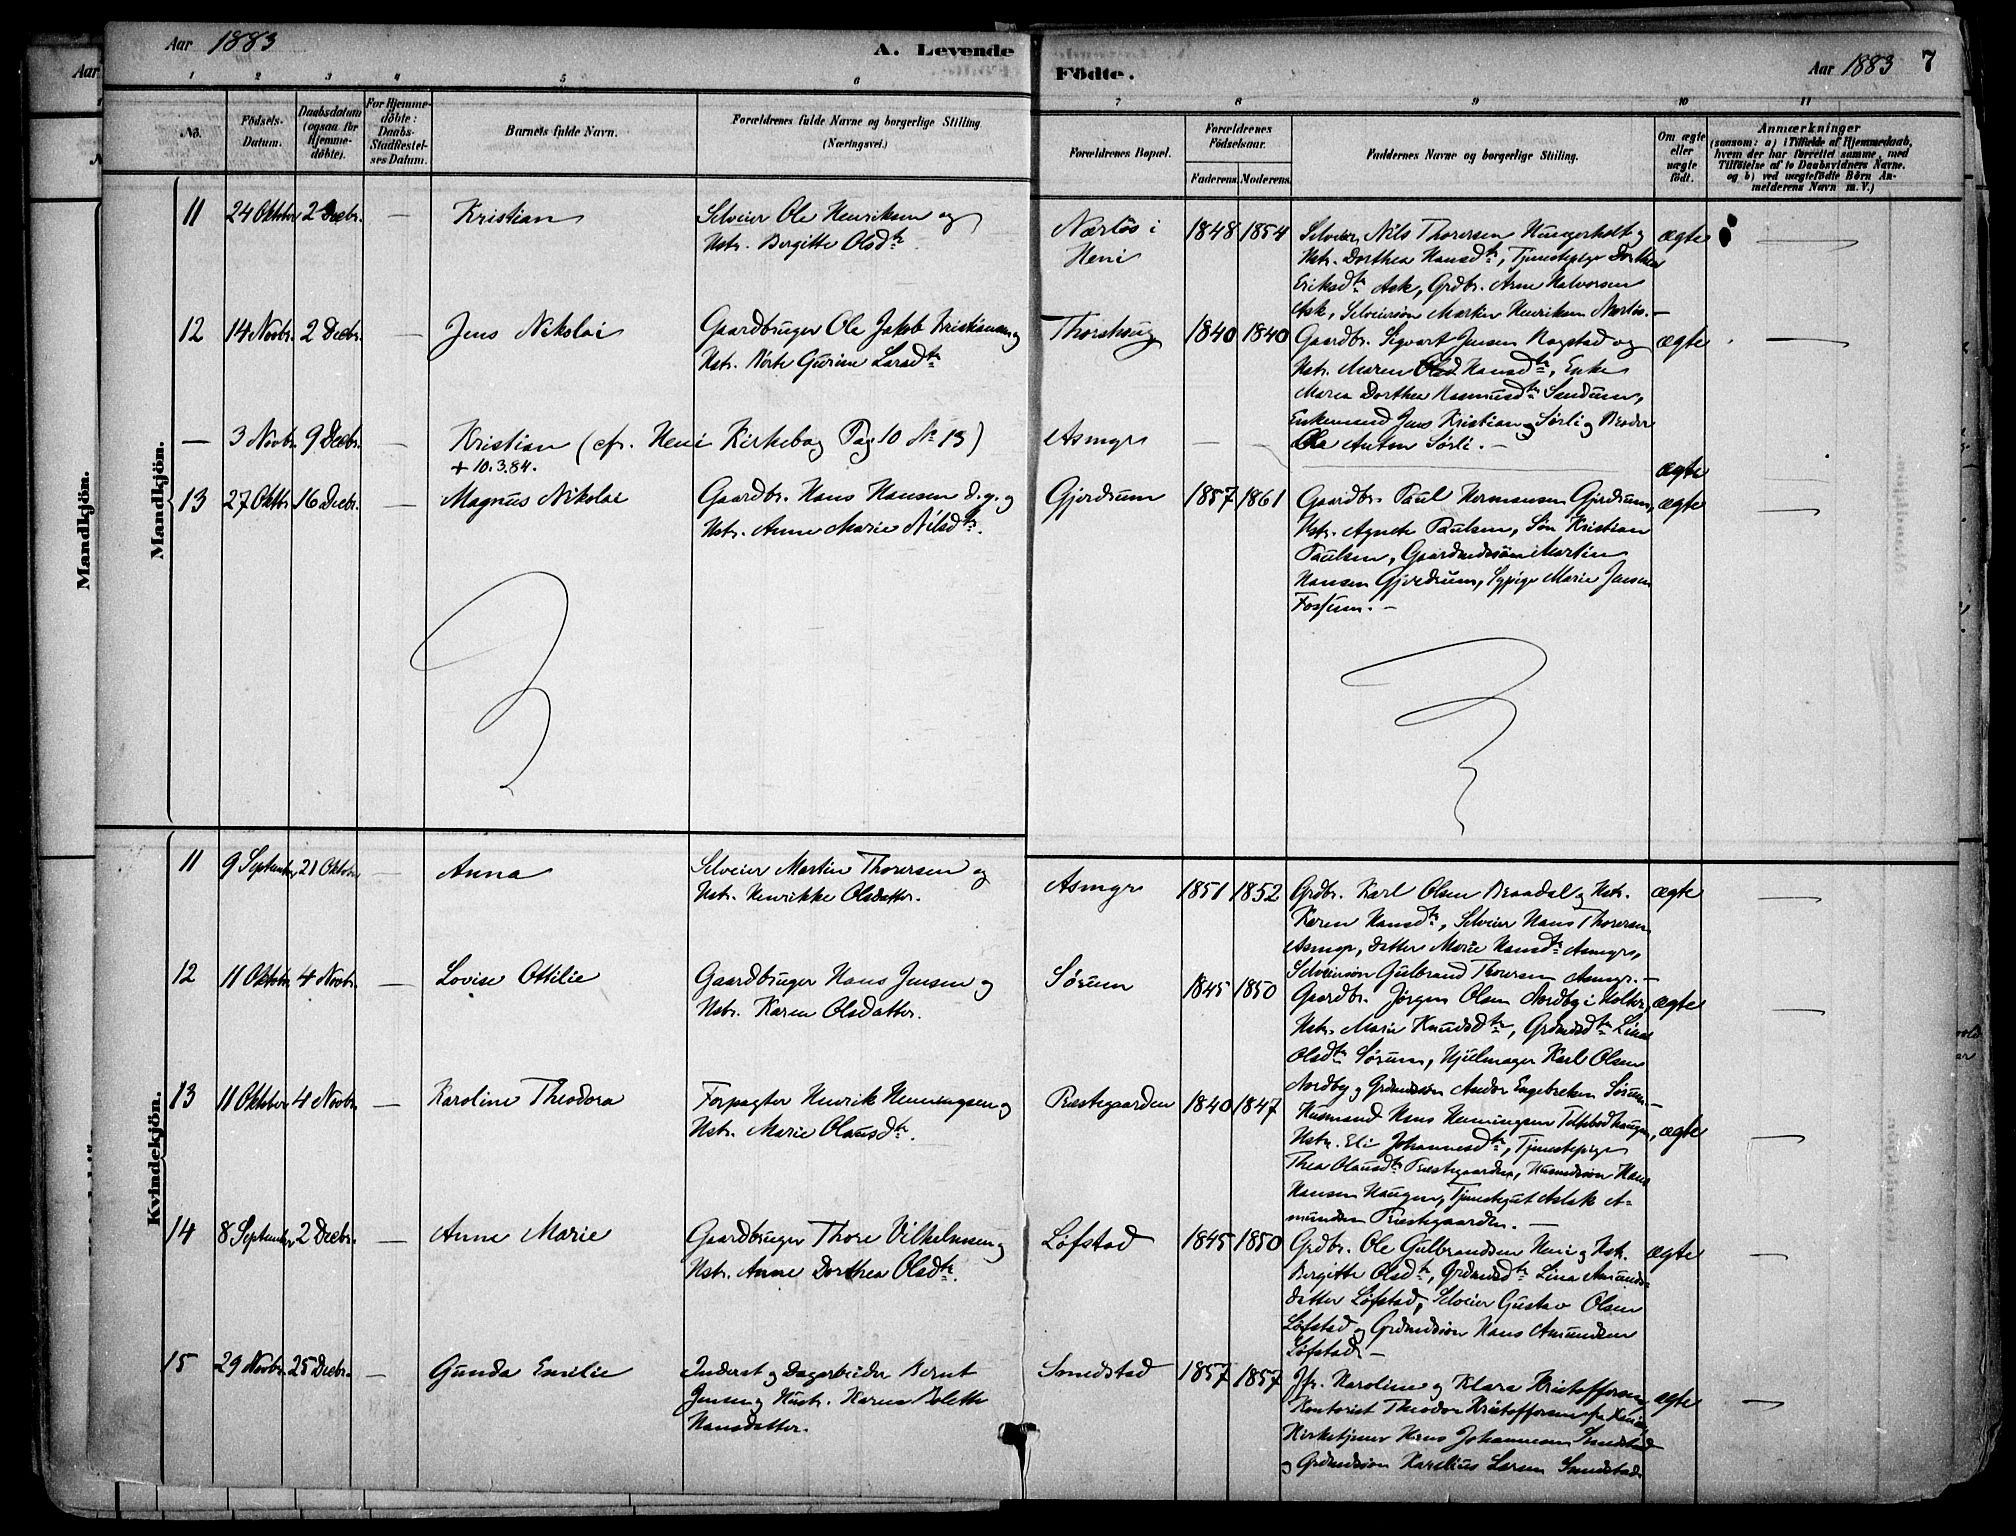 Aar 1883
A. Levende
Födte.
Aar 1883 7
1 2 3 4 5 6 7 8 9 10 11
No.
Födsels-
Datum.
Daabsdatum
(ogsaa for
Hjemme-
döbte).
For Hjemme-
döbte:
Daabs-
Stadfæstel-
ses Datum.
Barnets fulde Navn.
Forældrenes fulde Navne og borgerlige Stilling
(Næringsvei.)
Forældrenes Bopæl.
Forældrenes
Födselsaar.
Faderens. Moderens.
Faddernes Navne og borgerlige Stilling.
Om ægte
eller
uægte
födt.
Anmærkninger
(saasom: a) i Tilfælde af Hjemmedaab,
hvem der har forrettet samme, med
Tilföielse af to Daabsvidners Navne.
og b) ved uægtefödte Börn An-
melderens Navn m. V.)
Mandkjön.
Mandkjön.
11 24 Oktober 2 Decbr. — Kristian
Selveier Ole Henriksen og
Hstr. Bergitte Olsdtr.
Nærløs i
Heni
1848 1854
Selveier Nils Thoresen Hungerholt og
Hstr. Dorthea Hansdtr, Tjenestepige Dorthea
Eriksdtr Ask, Grdbr. Arne Halvorsen
Ask, Selveiersøn Martin Henriksen Nærløs. —
ægte —
12 14 Novbr. 2 Decbr. — Jens Nikolai
Gaardbruger Ole Jakob Kristiansen og
Hstr. Gurine Larsdtr
Thorshaug 1840 1840
Gaardbr. Sigvart Jensen Ragstad og
Hstr. Maren Hansdtr, Enke
Maren Dorthea Rasmusdtr Sundum,
Enkemand Jens Kristian Sørli og Broder
Ole Anton Sørli. —
ægte —
— 3 Novbr. 9 Decbr. — Kristian (cfr. Heni Kirkebog Pag 10 No 13)
Asmyr — —
ægte
+ 10.3.84.
13 27 Oktbr. 16 Decbr. — Magnus Nikolai
Gaardbr. Hans Hansen d.y. og
Hstr. Anne Marie Nilsdtr.
Gjerdrum 1857 1861
Gaardbr. Paul Hermansen Gjerdrum,
Hstr. Agnete Paulsen, Søn Kristian
Paulsen, Gaardmdssøn Martin
Hansen Gjerdrum, Sypige Marie Jensen
Fossum. —
ægte —
Kvindekjön.
11 9 September 21 Oktober Anna
Selveier Martin Thoresen og
Hstr. Henrikke Olsdatter.
Asmyr 1851 1852
Grdbr. Karl Olsen Braadal og Hstr.
Karen Hansdtr, Selveier Hans Thoresen
Asmyr, datter Marie Hansdtr Asmyr,
Selveiersøn Gulbrand Thoresen Asmyr. —
ægte —
12 11 Oktober 4 Novbr. — Lovise Ottilie
Gaardbruger Hans Jensen og
Hstr. Karen Olsdatter.
Sørum 1845 1850
Gaardbr. Jørgen Olsen Nordby i Holter,
Hstr. Marie Knudsdtr, Grdmdsdtr Lina
Olsdtr Sørum, Hjulmager Karl Olsen
Nordby og Grdmdssøn Andor Engebretsen Sørum. —
ægte —
13 11 Oktober 4 Novbr. — Karoline Theodora
Forpagter Henrik Henningsen og
Hstr. Marie Olausdtr.
Præstegaarden 1840 1847
Husmand Hans Henningsen Toftsbodhaugen,
Hstr. Eli Johannesdtr, Tjenestepige
Thea Olausdtr Præstegaarden, Husmdssøn Hans
Hansen Haugen, Tjenestegut Aslak A-
mundsen Præstegaarden. —
ægte —
14 8 September 2 Decbr. — Anne Marie
Gaardbruger Thore Vilhelmsen og
Hstr. Anne Dorthea Olsdtr.
Løfstad 1845 1850
Grdbr. Ole Gulbrandsen Heni og Hstr.
Bergitte Olsdtr, Grdmdsdtr Lina Amunds-
datter Løfstad, Selveier Gustav Olsen
Løfstad og Grdmdssøn Hans Amundsen
Løfstad. —
ægte —
15 29 Novbr. 25 Decbr. — Gunda Emilie
Inderst og Dagarbeider Bernt
Jensen og Hustr. Karen Bolette
Hansdatter.
Smedstad 1857 1857
Jfr. Karoline og Klara Kristoffersen,
Kontorist Theodor Kristoffersen fra
Kirketjener Hans Johannesen Smedstad
og Grdmdssøn Karelius Larsen Smedstad.
ægte —